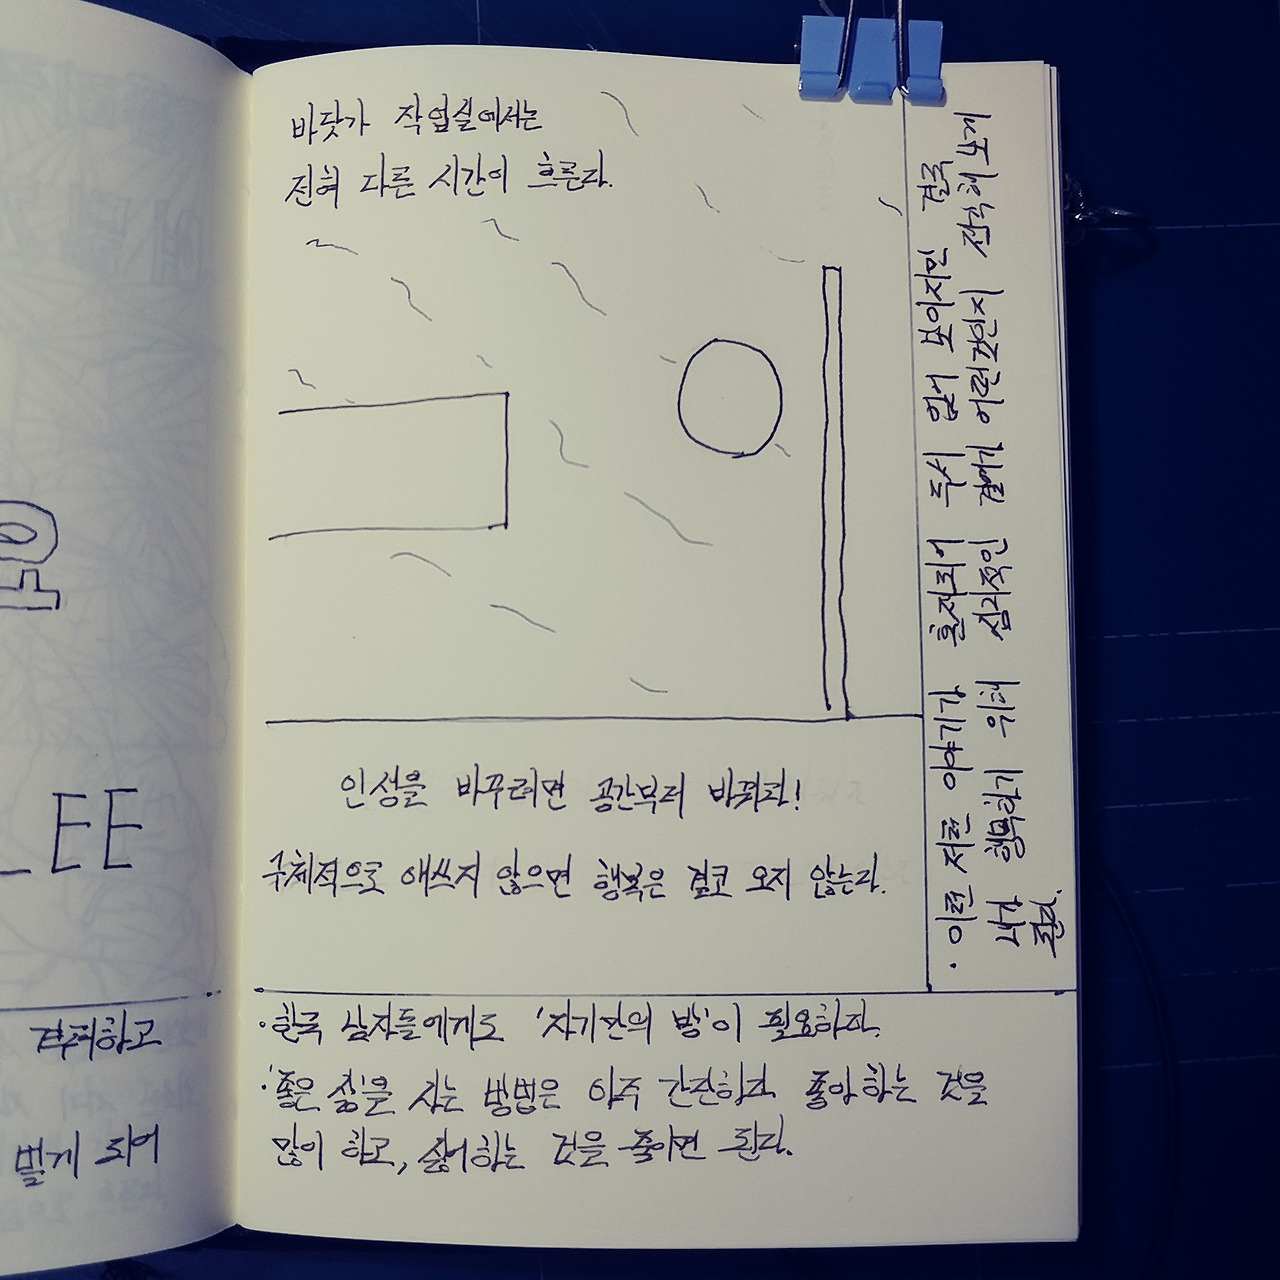 바닷가 작업실에서는
전혀 다른 시간이 흐른다.
인생을 바꾸려면 공간부터 바꿔라!
구체적으로 애쓰지 않으면 행복은 결코 오지 않는다.
· 이런 저런 이야기가 혼자되어 두서 없어 보이지만 결국
심리적인 결핍이 어떤건지 생각해 보게
내가 행복하기 위해
된다.
· 한국 남자들에게도 '자기만의 방'이 필요하다.
· '좋은 삶'을 사는 방법은 아주 간단하다 좋아하는 것을
많이 하고, 싫어하는 것을 줄이면 된다.
LEE
벌게 되어